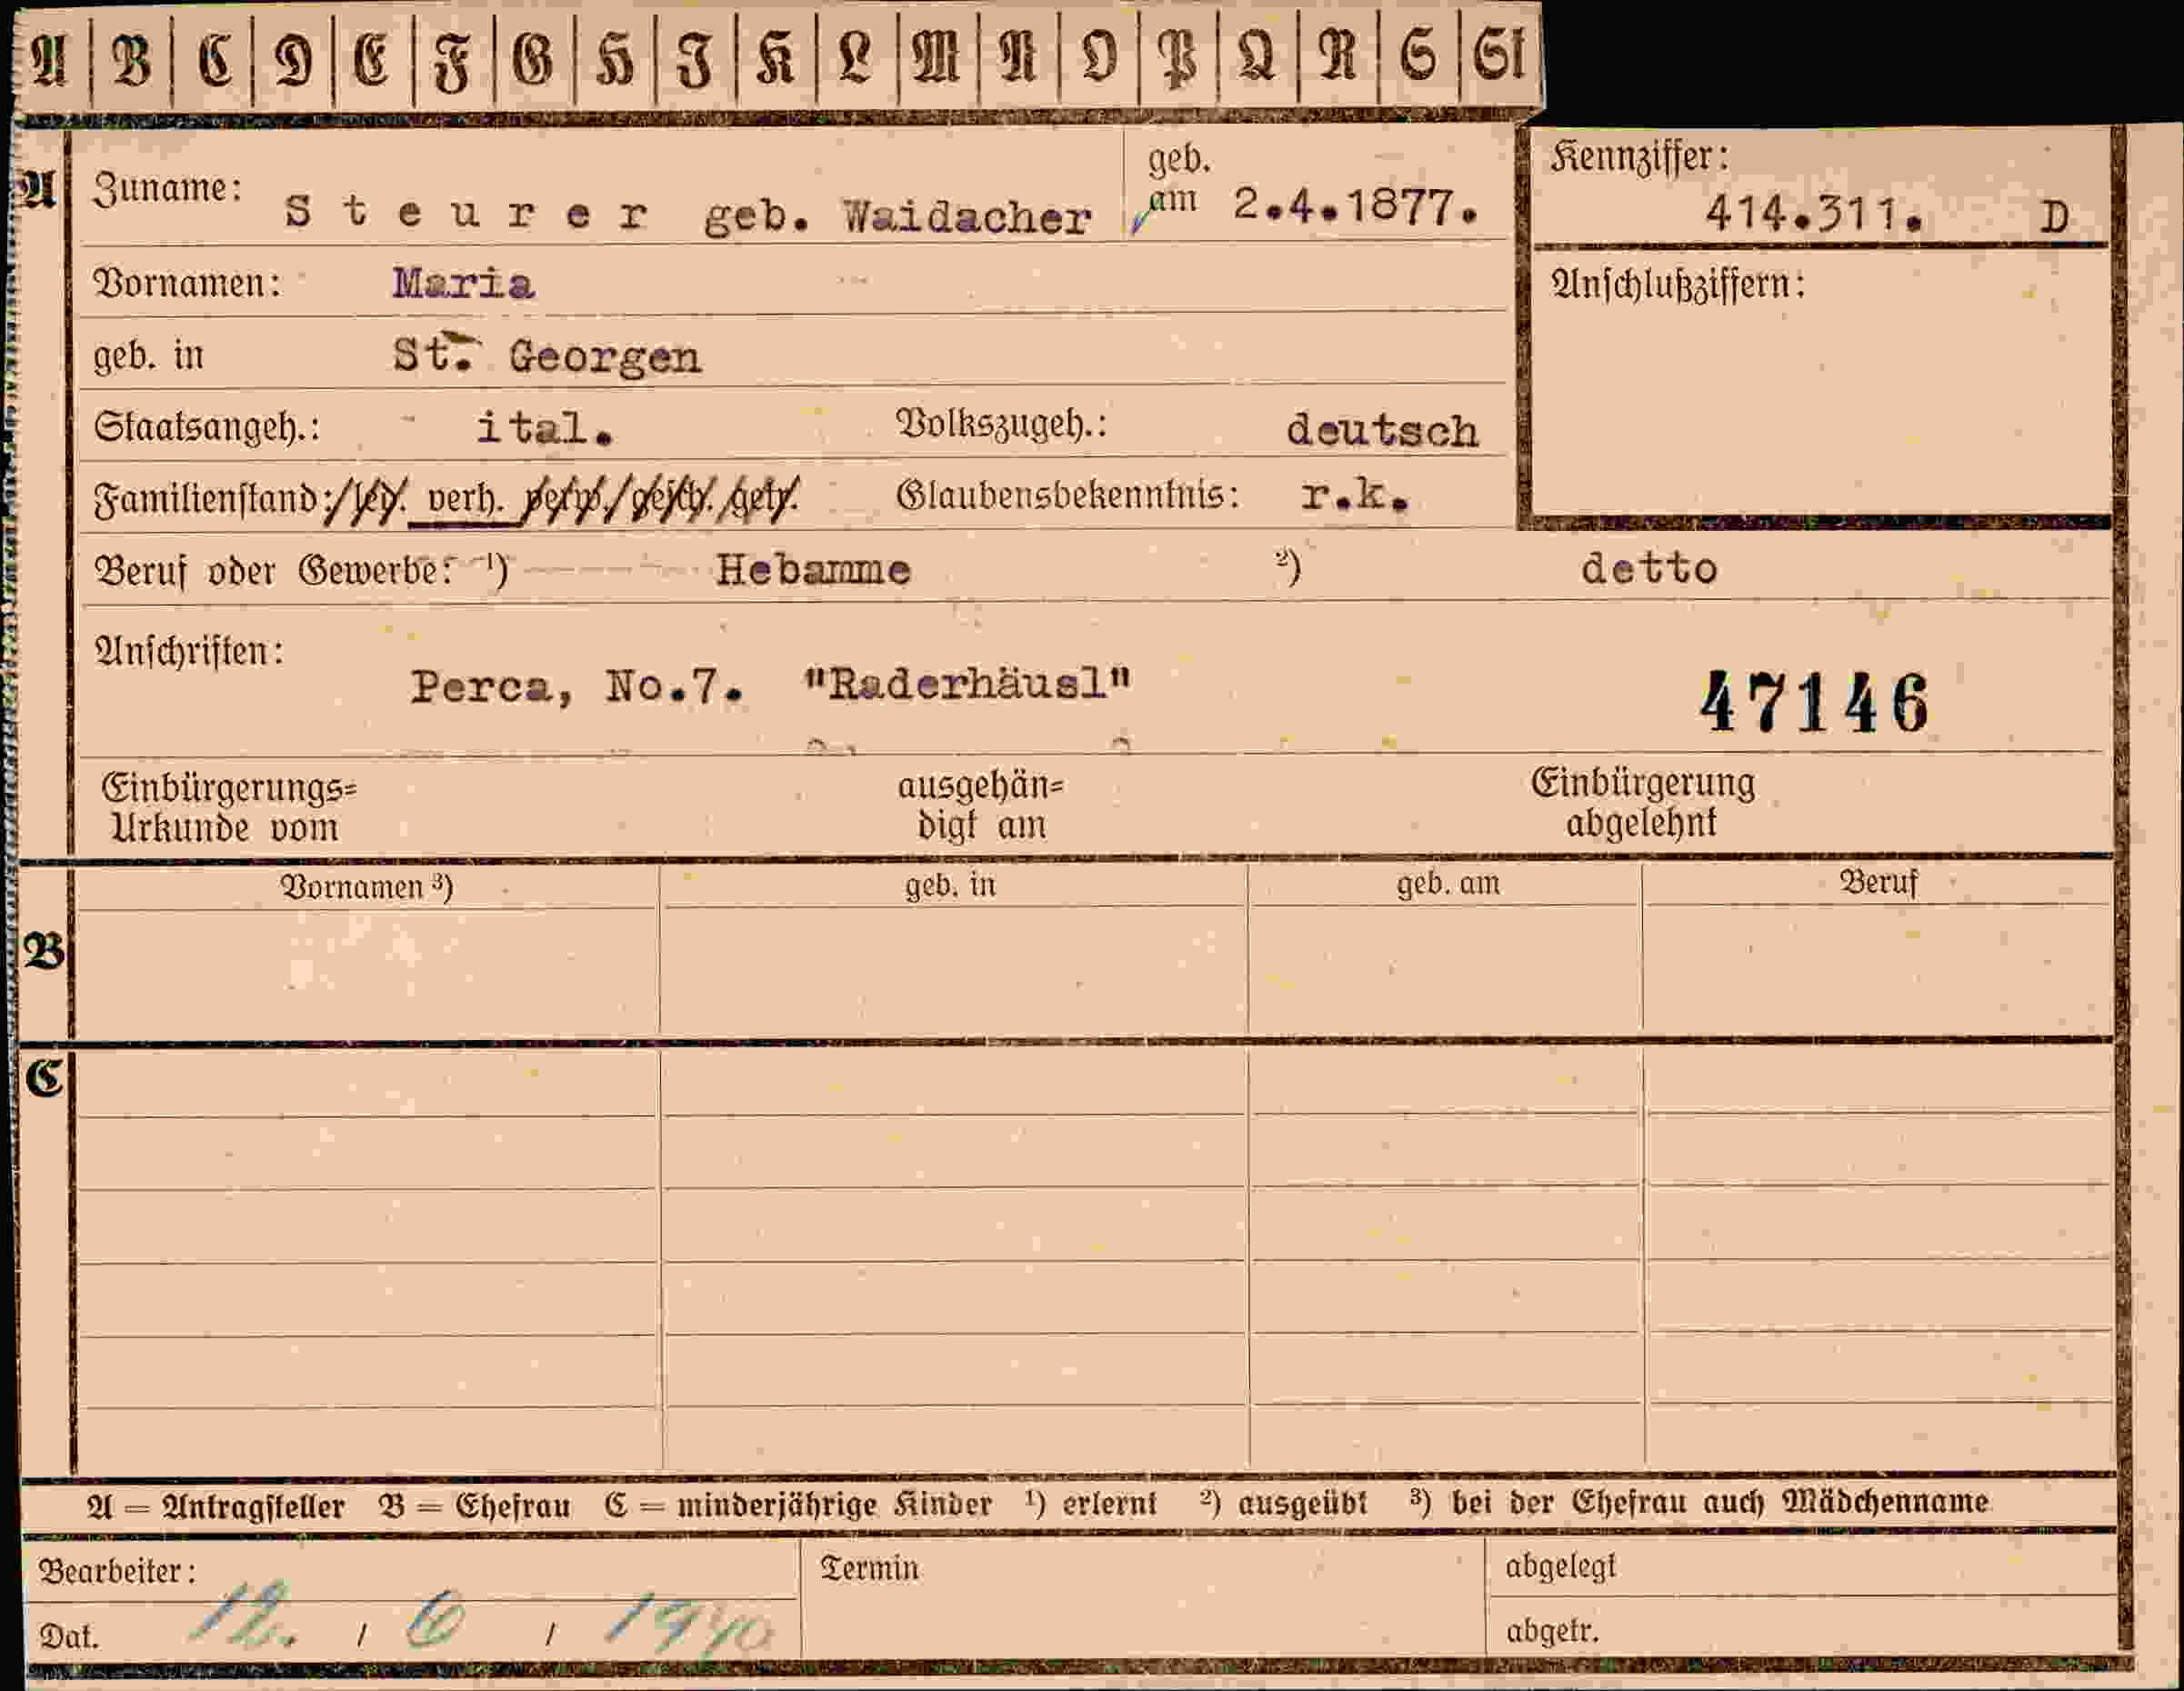 A B C D E F G H I K L M N O P Q R S St
A Zuname: Steurer geb. Waidacher geb. am 2.4.1877. Kennziffer: 414.311. D
Vornamen: Maria Anschlußziffern:
geb. in St. Georgen
Staatsangeh.: ital. Volkszugeh.: deutsch
Familienstand: led. verh. verw. gesch. getr. Glaubensbekenntnis: r.k.
Beruf oder Gewerbe: ¹) Hebamme ²) detto
Anschriften: Perca, No.7. "Raderhäusl" 47146
Einbürgerungs= ausgehän= Einbürgerung
Urkunde vom digt am abgelehnt
Vornamen ³) geb. in geb. am Beruf
B
C
A = Antragsteller B = Ehefrau C = minderjährige Kinder ¹) erlernt ²) ausgeübt ³) bei der Ehefrau auch Mädchenname
Bearbeiter: Termin abgelegt
Dat. 12. / 6 / 1940 abgetr.